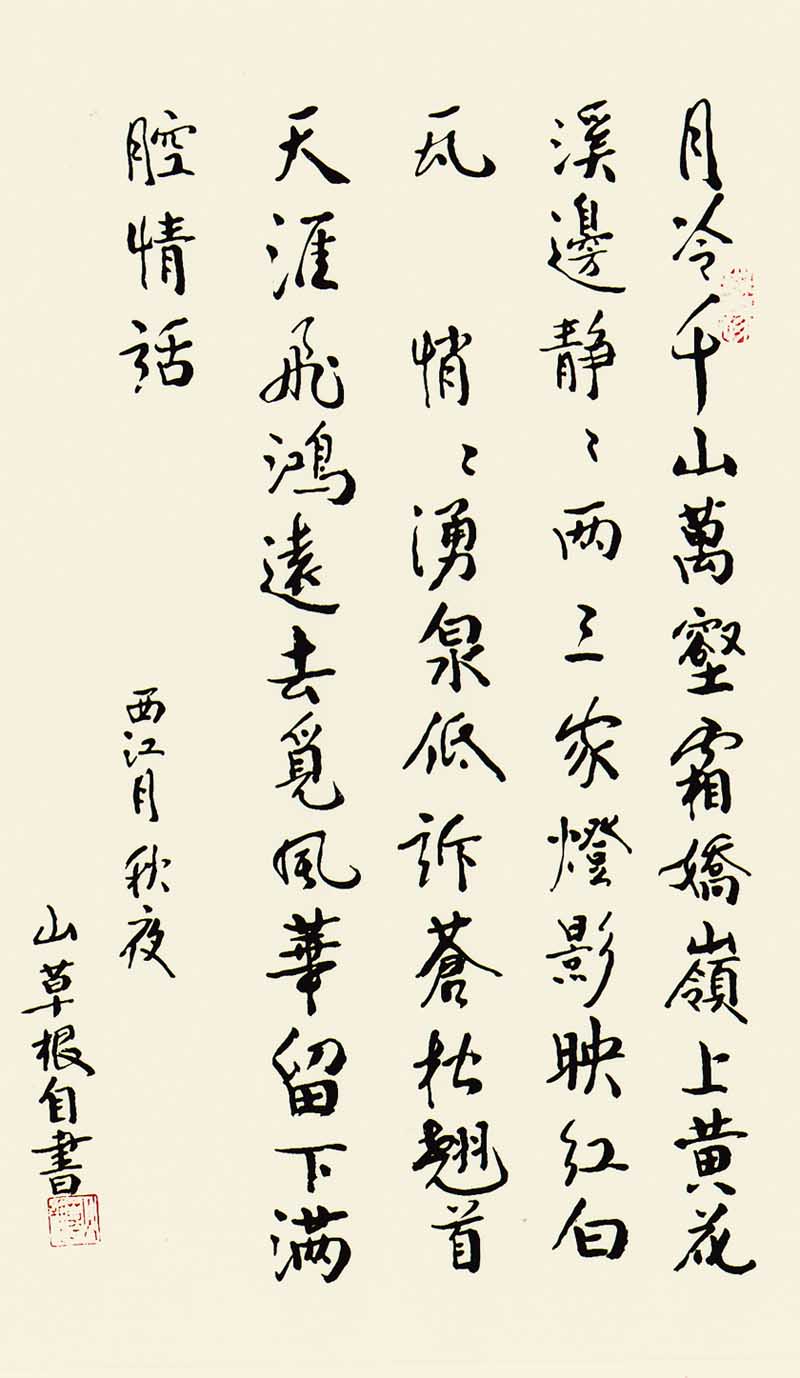 月冷千山萬壑霜嬌嶺上黄花
溪邊静〻两三家燈影映红白
瓦　悄〻湧泉低訴蒼松翹首
天涯飛鴻遠去覓風華留下满
腔情話
西江月 秋夜
山草根自書